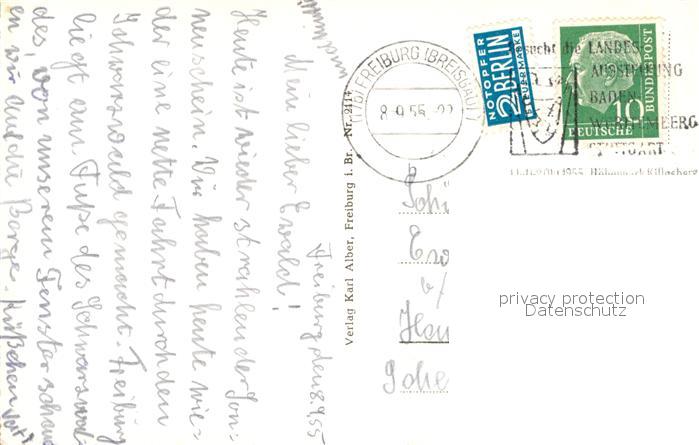 Freiburg den 8.9.55
Mein lieber Ewald!
Heute ist wieder strahlender Son-
nenschein. Wir haben heute wie-
der eine nette Fahrt durch den
Schwarzwald gemacht. Freiburg
liegt am Fuße des Schwarzwal-
des, von unserem Fenster schau
en wir auf die Berge. Küßchen
Verlag Karl Alber, Freiburg i. Br. Nr. 2114
FREIBURG (BREISGAU)
8.9.55
b
NOTOPFER
2 BERLIN
STEUERMARKE
10
DEUTSCHE
BUNDESPOST
Besucht die LANDES-
AUSSTELLUNG
BADEN-
WÜRTTEMBERG
STUTTGART
1955 Höhenpark Killesberg
b/
privacy protection
Datenschutz